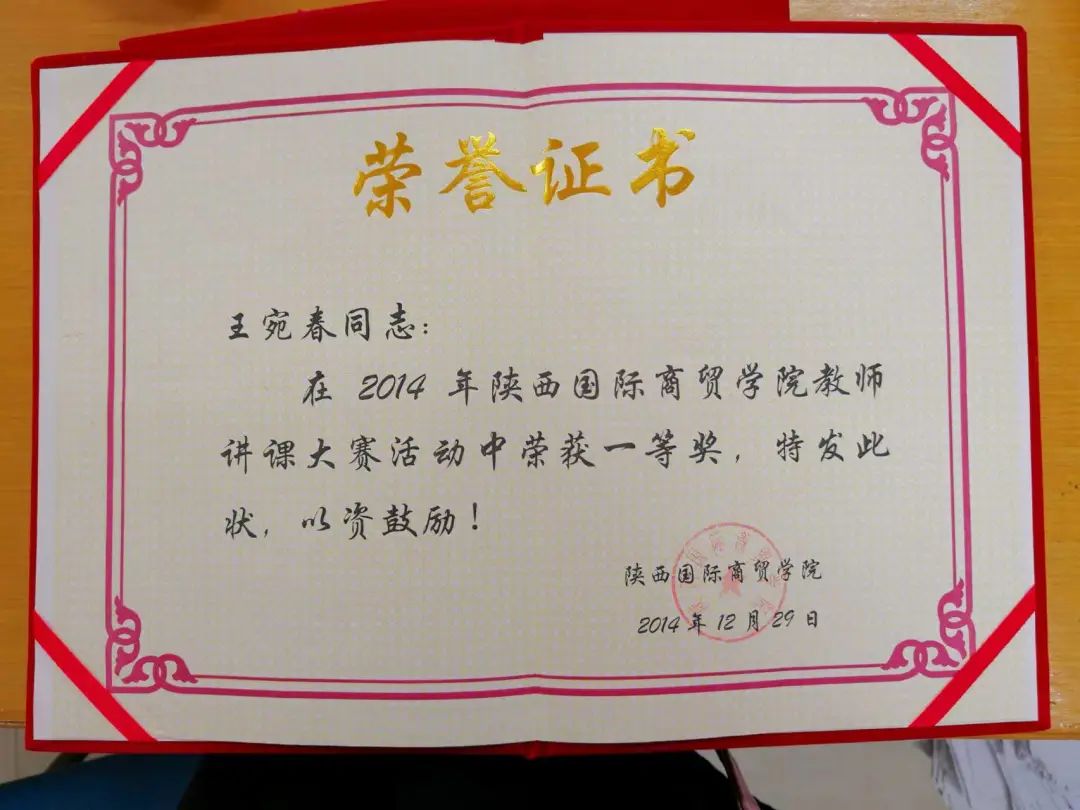 荣誉证书
王宛春同志：
在 2014 年陕西国际商贸学院教师
讲课大赛活动中荣获一等奖，特发此
状，以资鼓励！
陕西国际商贸学院
2014 年 12 月 29 日